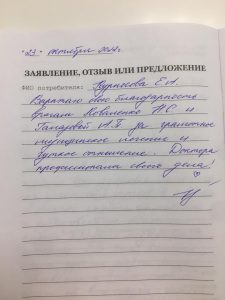 "23" октября 2024г.
ЗАЯВЛЕНИЕ, ОТЗЫВ ИЛИ ПРЕДЛОЖЕНИЕ
ФИО потребителя: Курносова Е.А.
Выражаю свою благодарность
врачам Коваленко Н.С и
Гончаровой И.В за грамотное
медицинское лечение и
чуткое отношение. Доктора
профессионалы своего дела!